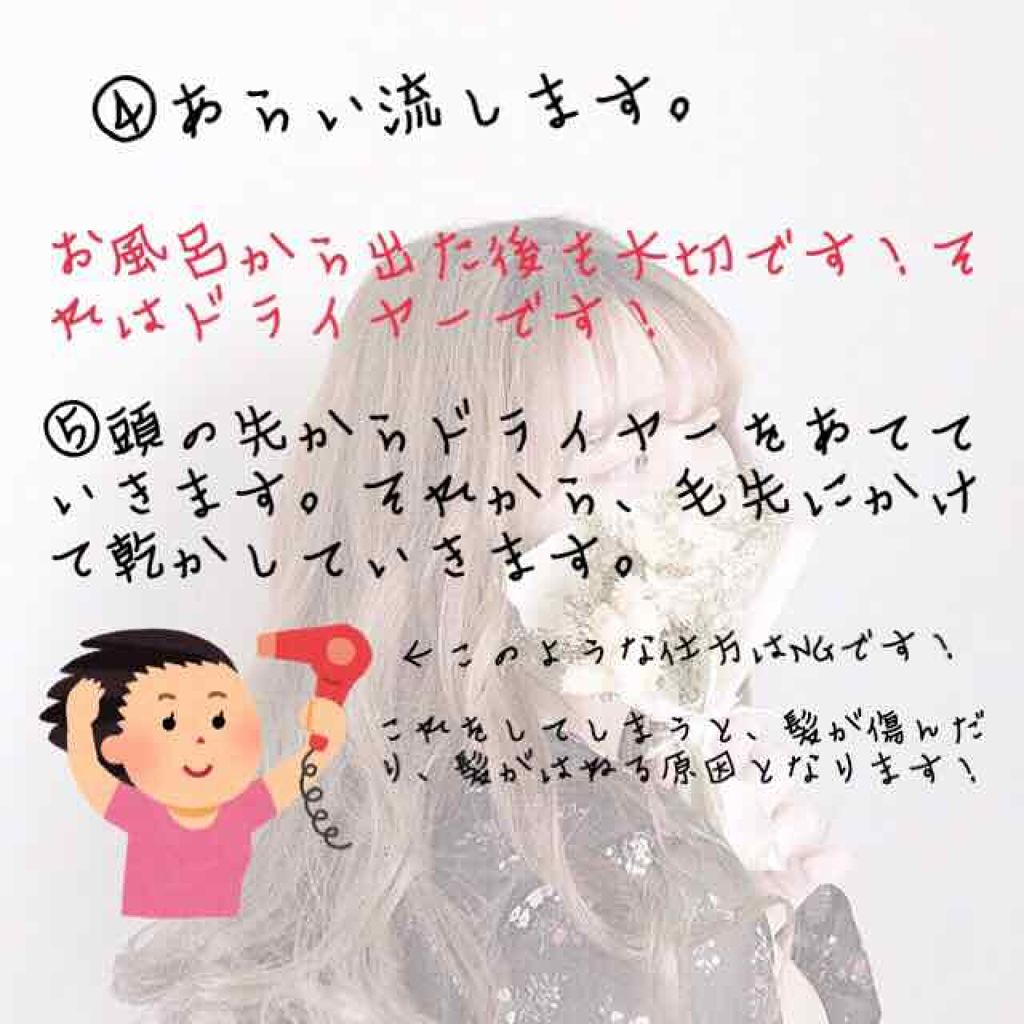 ④あらい流します。
お風呂から出た後も大切です！そ
れはドライヤーです！
⑤頭の先からドライヤーをあてて
いきます。それから、毛先にかけ
て乾かしていきます。
←このような仕方はNGです！
これをしてしまうと、髪が傷んだ
り、髪がはねる原因となります！